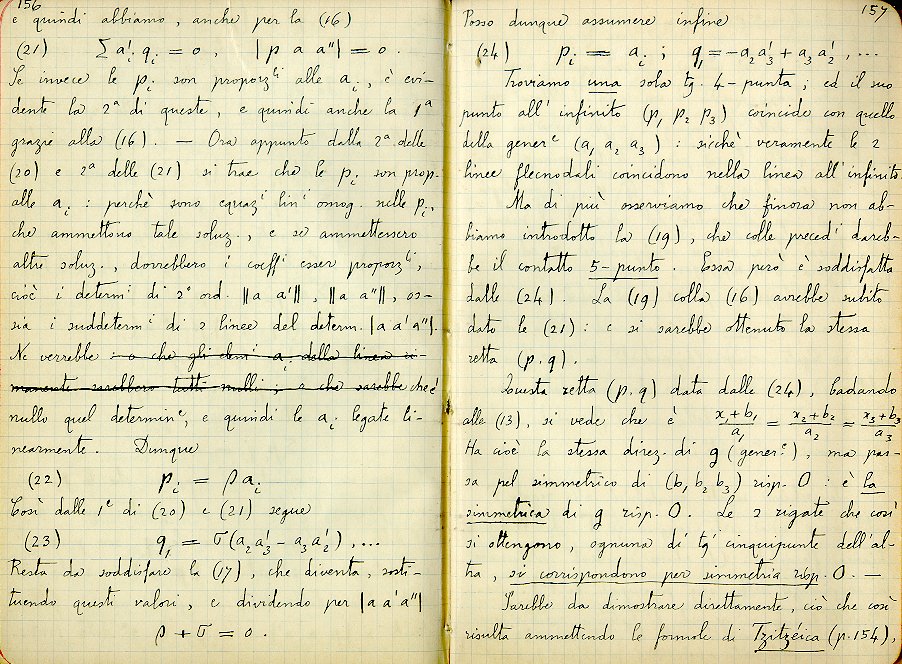 156
e quindi abbiamo, anche per la (16)
(21) Σ a'ᵢ qᵢ = 0 , |p a a''| = 0 .
Se invece le pᵢ son proporz^li alle aᵢ, è evi-
dente la 2ª di queste, e quindi anche la 1ª
grazie alla (16). — Ora appunto dalla 2ª delle
(20) e 2ª delle (21) si trae che le pᵢ son prop.
alle aᵢ : perchè sono equaz^i lin^i omog. nelle pᵢ,
che ammettono tale soluz., e se ammettessero
altre soluz., dovrebbero i coeffi esser proporz^li,
cioè i determ^i di 2° ord. ||a a'||, ||a a''||, os-
sia i suddeterm^i di 2 linee del determ. |a a' a''|.
Ne verrebbe : o che gli elem^i aᵢ della linea ri-
manente sarebbero tutti nulli ; o che sarebbe che è
nullo quel determin^e, e quindi le aᵢ legate li-
nearmente. Dunque
(22) pᵢ = ρ aᵢ
Così dalle 1^e di (20) e (21) segue
(23) q₁ = σ(a₂a'₃ − a₃a'₂), ...
Resta da soddisfare la (17), che diventa, sosti-
tuendo questi valori, e dividendo per |a a' a''|
ρ + σ = 0 .
157
Posso dunque assumere infine
(24) pᵢ = aᵢ ; q₁ = −a₂a'₃ + a₃a'₂ , ...
Troviamo una sola tg. 4-punta ; ed il suo
punto all'infinito (p₁ p₂ p₃) coincide con quello
della gener^e (a₁ a₂ a₃) : sicchè veramente le 2
linee flecnodali coincidono nella linea all'infinito.
Ma di più osserviamo che finora non ab-
biamo introdotto la (19), che colle preced^i dareb-
be il contatto 5-punto. Essa però è soddisfatta
dalle (24). La (19) colla (16) avrebbe subito
dato le (21) : e si sarebbe ottenuto la stessa
retta (p,q).
Questa retta (p,q) data dalle (24), badando
alle (13), si vede che è x₁+b₁/a₁ = x₂+b₂/a₂ = x₃+b₃/a₃
Ha cioè la stessa direz. di g (gener^e), ma pas-
sa pel simmetrico di (b₁ b₂ b₃) risp. O : è la
simmetrica di g risp. O. Le 2 rigate che così
si ottengono, ognuna di tg^i cinquipunte dell'al-
tra, si corrispondono per simmetria risp. O. —
Sarebbe da dimostrare direttamente, ciò che così
risulta ammettendo le formole di Tzitzéica (p. 154),